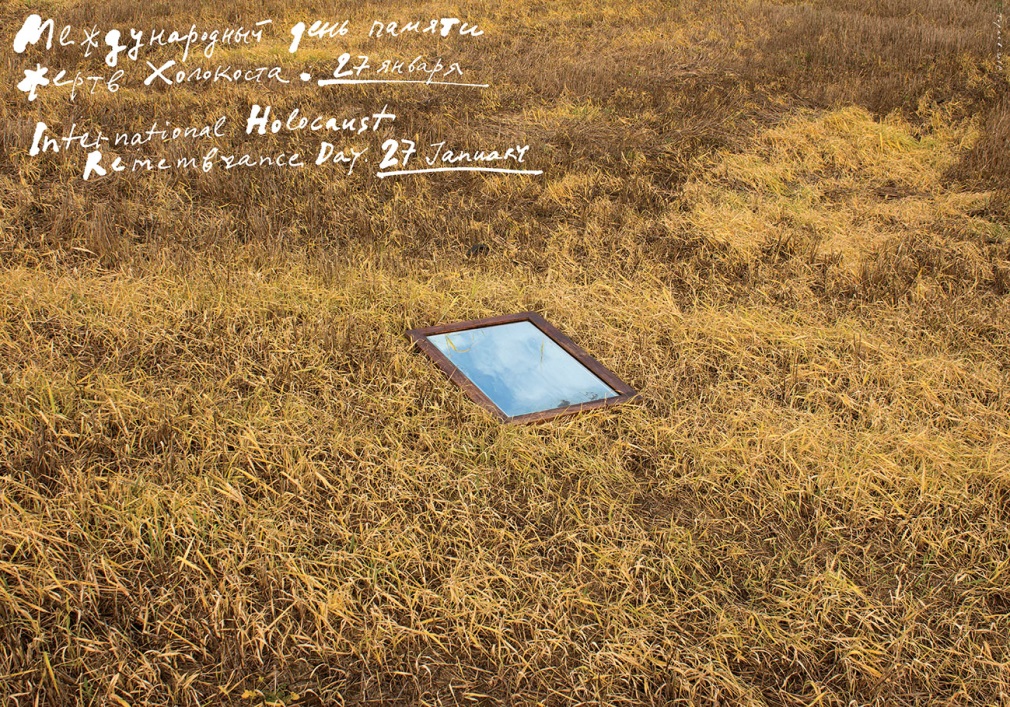 Международный день памяти
жертв Холокоста. 27 января
International Holocaust
Remembrance Day. 27 January